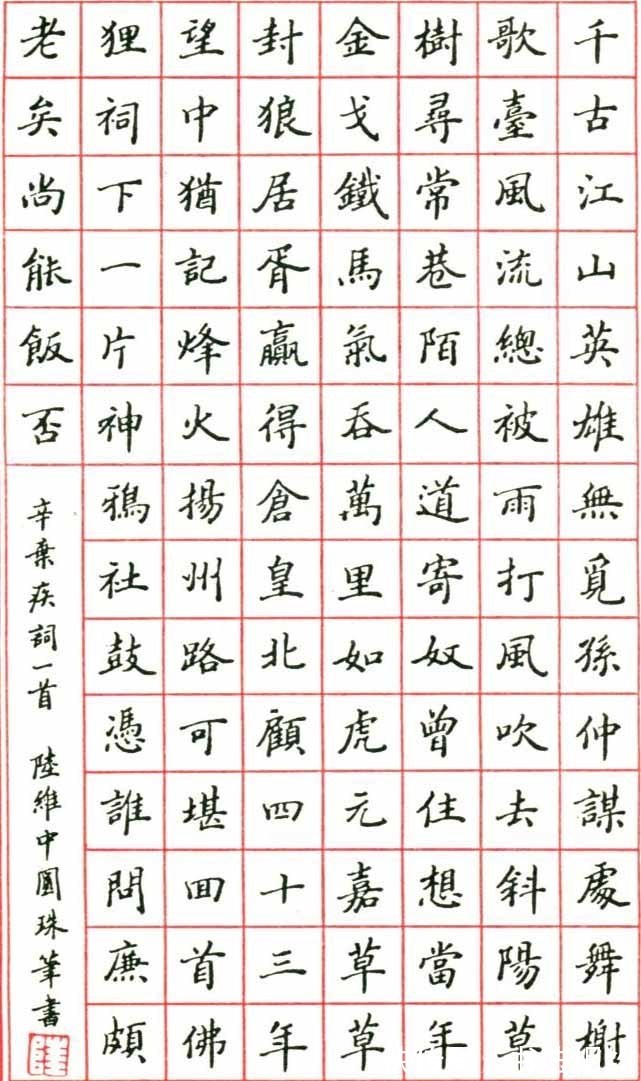 千古江山英雄無覓孫仲謀處舞榭
歌臺風流總被雨打風吹去斜陽草
樹尋常巷陌人道寄奴曾住想當年
金戈鐵馬氣吞萬里如虎元嘉草草
封狼居胥贏得倉皇北顧四十三年
望中猶記烽火揚州路可堪回首佛
狸祠下一片神鴉社鼓憑誰問廉頗
老矣尚能飯否
辛棄疾詞一首 陸維中圓珠筆書
陸